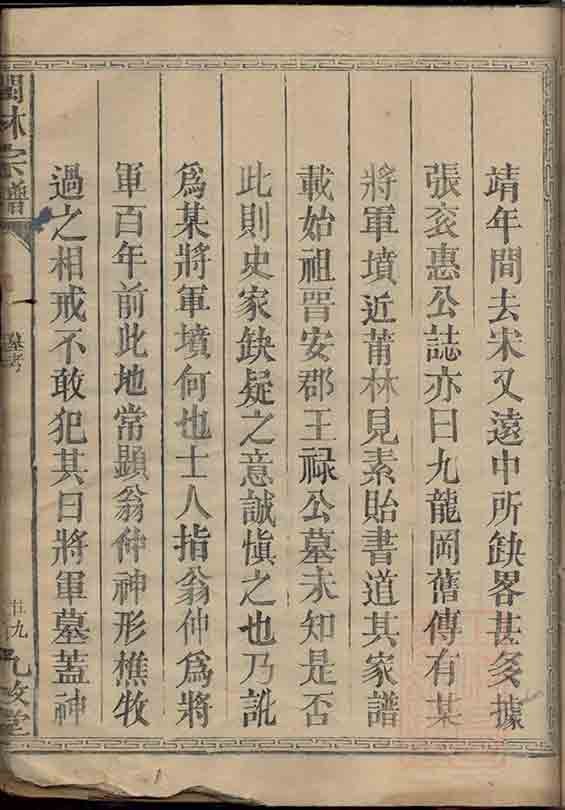 靖年間去宋又遠中所缺畧甚多據
張㐮惠公誌亦曰九龍岡舊傳有某
將軍墳近莆林見素貽書道其家譜
載始祖晋安郡王禄公墓未知是否
此則史家缺疑之意誠慎之也乃訛
爲某將軍墳何也士人指翁仲爲將
軍百年前此地常顯翁仲神形樵牧
過之相戒不敢犯其曰將軍墓蓋神
林宗譜
墓考
廿九